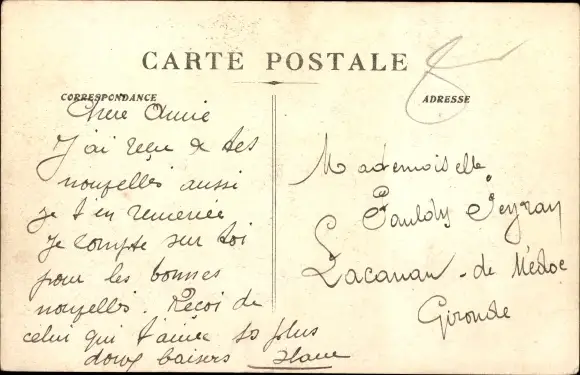 CARTE POSTALE
CORRESPONDANCE
Chere Amie
J'ai reçu de tes
nouvelles aussi
je t'en remercie
Je compte sur toi
pour les bonnes
nouvelles. Reçoi de
celui qui t'aime so plus
doux baisers
ADRESSE
Mademoiselle
Peyran
Lacanau - de Médoc
Gironde